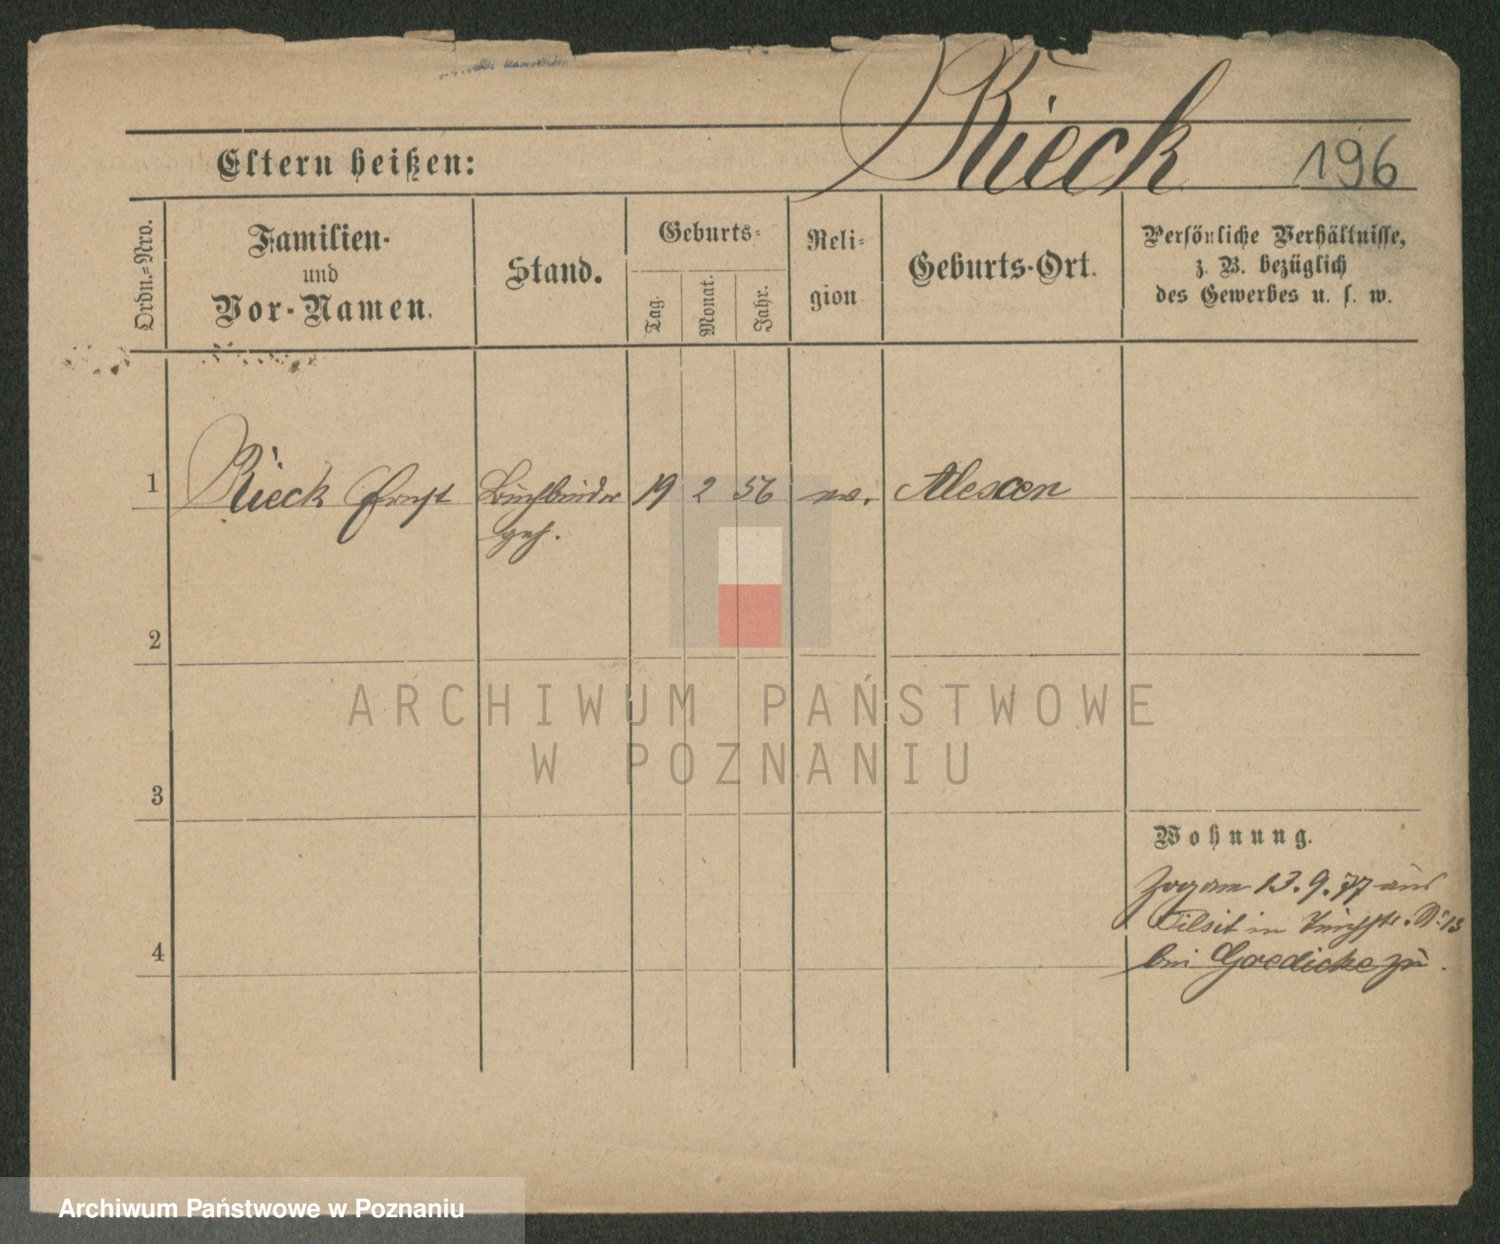 Rieck
196
Eltern heißen:
Ordn.=Nro.
Familien-
und
Vor-Namen.
Stand.
Geburts=
Tag.
Monat.
Jahr.
Reli=
gion
Geburts-Ort.
Persönliche Verhältnisse,
z. B. bezüglich
des Gewerbes u. s. w.
1 Rieck Ernst Buchbinder 19 2 56 ev. Alexen
geh.
2
ARCHIWUM PAŃSTWOWE
W POZNANIU
3
Wohnung.
Zog am 13.9.77 aus
Tilsit in No 13
4
bei Goedicke zu.
Archiwum Państwowe w Poznaniu